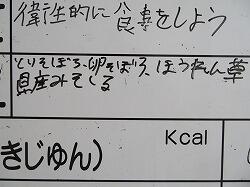 衛生的に食事をしよう
とりそぼろ、卵そぼろ、ほうれん草
具産みそしる
Kcal
きじゅん)